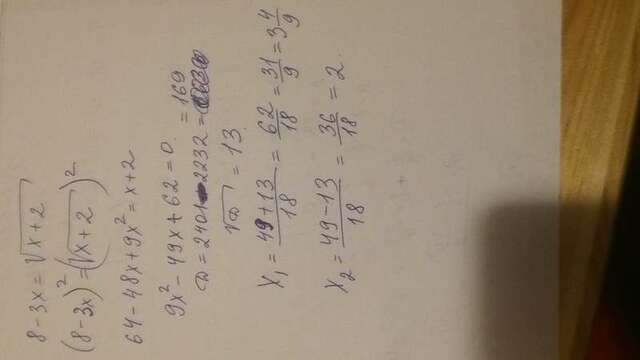 8-3x=√x+2
(8-3x)²=(√x+2)²
64-48x+9x²=x+2
9x²-49x+62=0.
D=2401-2232= =169
√D=13.
x₁=49+13/18=62/18=31/9=3 4/9
x₂=49-13/18=36/18=2.